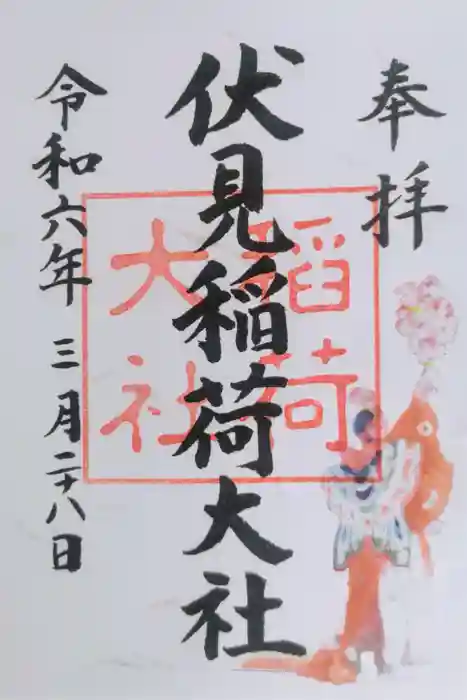 奉拝
伏見稲荷大社
稲荷
大社
令和六年 三月二十八日